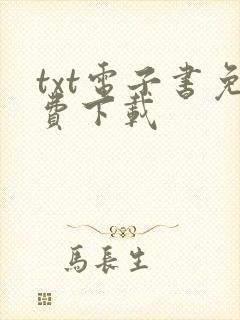 txt電子書免
費下載
馬長生